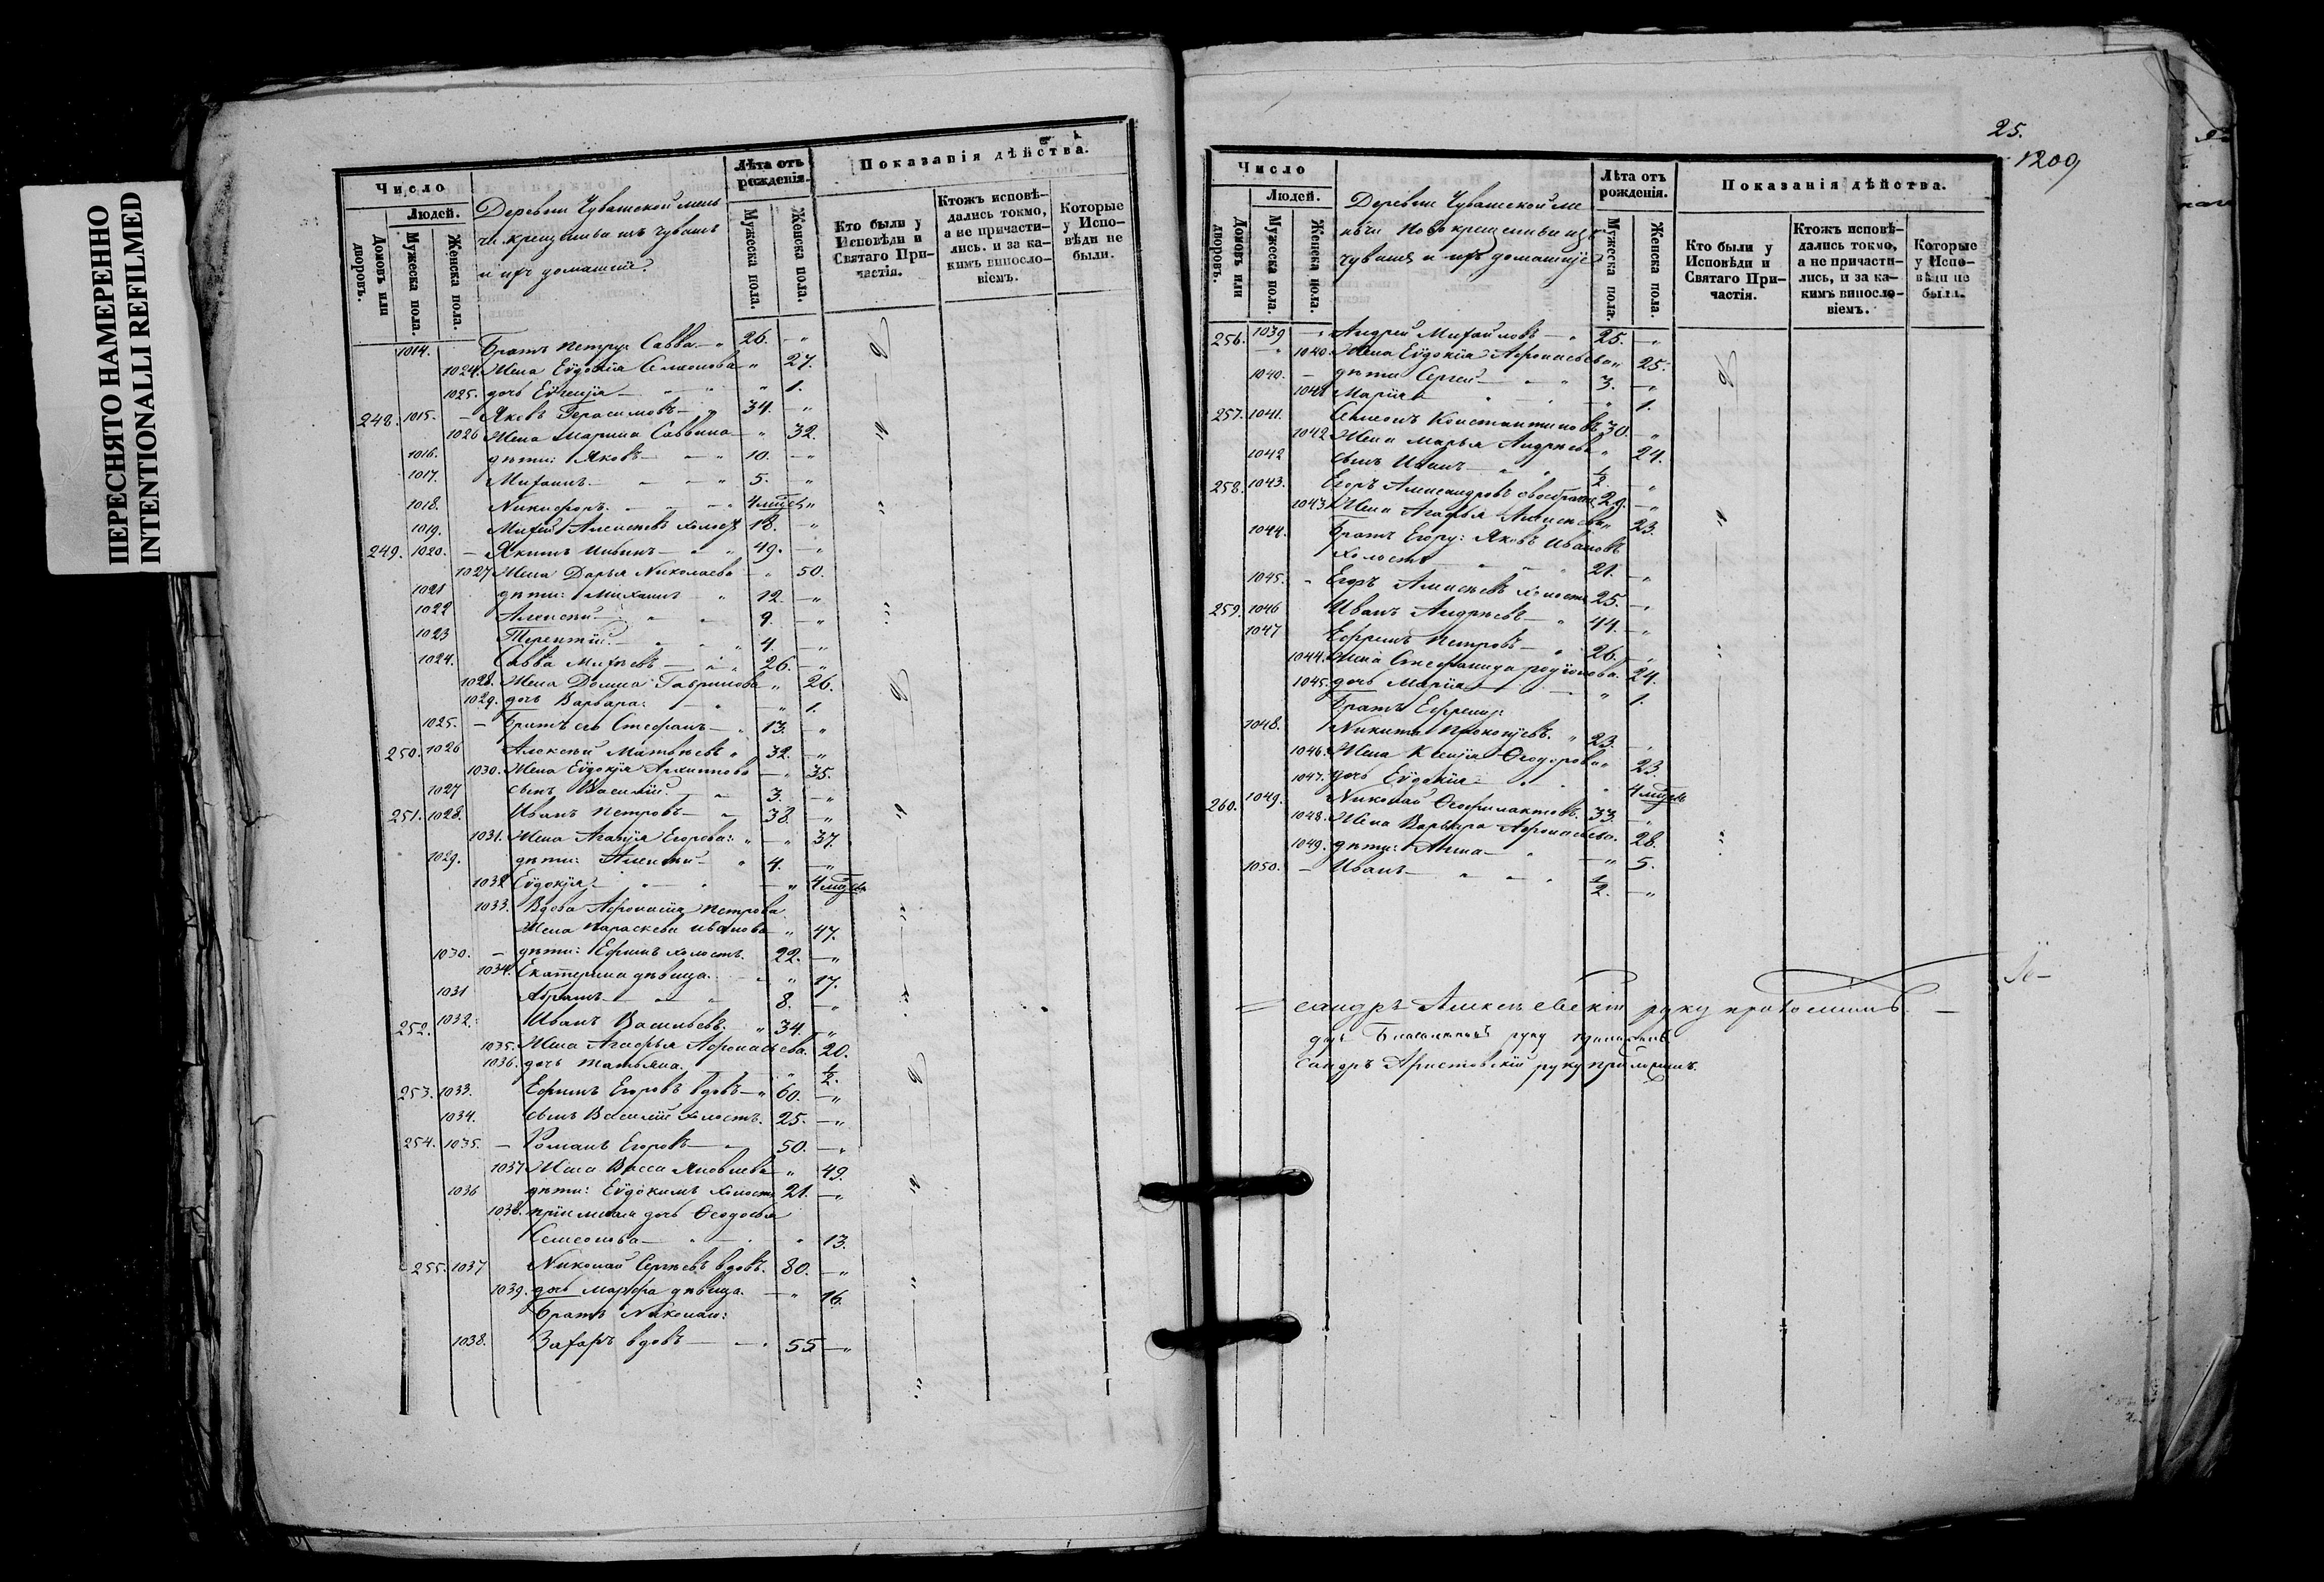 ПЕРЕСНЯТО НАМЕРЕННО
INTENTIONALLI REFILMED
Число
Людей.
Домовъ или дворовъ.
Мужеска пола.
Женска пола.
Деревни Чувашской мель
чи крещеныя изъ чувашъ
и ихъ домашніе.
Лѣта отъ рожденія.
Мужеска пола.
Женска пола.
Показанія дѣйства.
Кто были у Исповѣди и Святаго Причастія.
Ктожъ исповѣдались токмо, а не причастились. и за какимъ винословіемъ.
Которые у Исповѣди не были.
1014. Братъ Петру: Савва 26.
1024. Жена Еѵдокія Симеонова 27.
1025. дочь Еѵгенія 1.
248. 1015. Яковъ Герасимовъ 34.
1026 Жена Марина Саввина 32.
1016. дѣти: Яковъ 10.
1017. Михаилъ 5.
1018. Никифоръ 4 мѣся
1019. Михей Алексѣевъ холост 18.
249. 1020. Якимъ Ильинъ 49.
1027 Жена Дарья Николаева 50.
1021 дѣти: Михаилъ 12.
1022 Алексѣй 9.
1023 Терентій 4.
1024. Савва Михѣевъ 26.
1028. Жена Домна Гаврилова 26.
1029. дочь Варвара: 1.
1025. Братъ его Стефанъ 13.
250. 1026 Алексѣй Матвѣевъ 32.
1030. Жена Еѵдокія Архиппова 35.
1027 сынъ Василій 3.
251. 1028. Иванъ Петровъ 38.
1031. Жена Агафія Егорова: 37.
1029. дѣти: Алексѣй 4.
1032 Еѵдокія 4 мѣся
1033. Вдова Афонасія Петрова
Жена Параскева Иванова 47.
1030. дѣти: Ефимъ холостъ. 22.
1034. Екатерина дѣвица. 17.
1031 Абрамъ 8.
252. 1032. Иванъ Васильевъ. 34.
1035. Жена Агафья Афонасьева. 20.
1036. дочь Татьяна. 1/2.
253. 1033. Ефимъ Егоровъ вдовъ 60.
1034. сынъ Василій холостъ. 25.
254. 1035. Романъ Егоровъ 50.
1037 Жена Васса Яковлева 49.
1036 дѣти: Еѵдокимъ холостъ 21.
1038. пріемная дочь Ѳеодосья
Семеонова 13.
255. 1037 Николай Сергѣевъ вдовъ. 80.
1039. дочь Марфа дѣвица. 16.
Братъ Николаю:
1038. Захаръ вдовъ 55
25.
1209
Число
Людей.
Домовъ или дворовъ.
Мужеска пола.
Женска пола.
Деревни Чувашской ме
льчи Новокрещеныя изъ
чувашъ и ихъ домашніе
Лѣта отъ рожденія.
Мужеска пола.
Женска пола.
Показанія дѣйства.
Кто были у Исповѣди и Святаго Причастія.
Ктожъ исповѣдались токмо, а не причастились, и за какимъ винословіемъ.
Которые у Исповѣди не были.
256. 1039 Андрей Михайловъ 25.
1040. Жена Еѵдокія Афонасьева 25.
1040. дѣти Сергей 3.
1041 Марія 1.
257. 1041. Семеонъ Константиновъ 30.
1042 Жена Марья Андреева 24.
1042 сынъ Иванъ 1/2.
258. 1043. Егоръ Александровъ 29.
1043 Жена Агафья Алексѣева 23.
1044. Братъ Егору: Яковъ Ивановъ
холостъ 21.
1045. Егоръ Алексѣевъ холостъ 25.
259. 1046 Иванъ Андреевъ 44.
1047 Ефремъ Петровъ 26.
1044. Жена Стефанида Родіонова. 24.
1045. дочь Марія 1.
Братъ Ефрему:
1048. Никита Прокопіевъ. 23.
1046. Жена Ксенія Ѳеодорова 23.
1047. дочь Еѵдокія 4 мѣся
260. 1049. Николай Ѳеофилактовъ. 33.
1048. Жена Варвара Афонасьева. 28.
1049. дѣти: Анна 5.
1050. Иванъ 1/2.
сандръ Алексѣевскій руку приложилъ.
руку приложилъ
сандръ Аристовскій руку приложилъ.